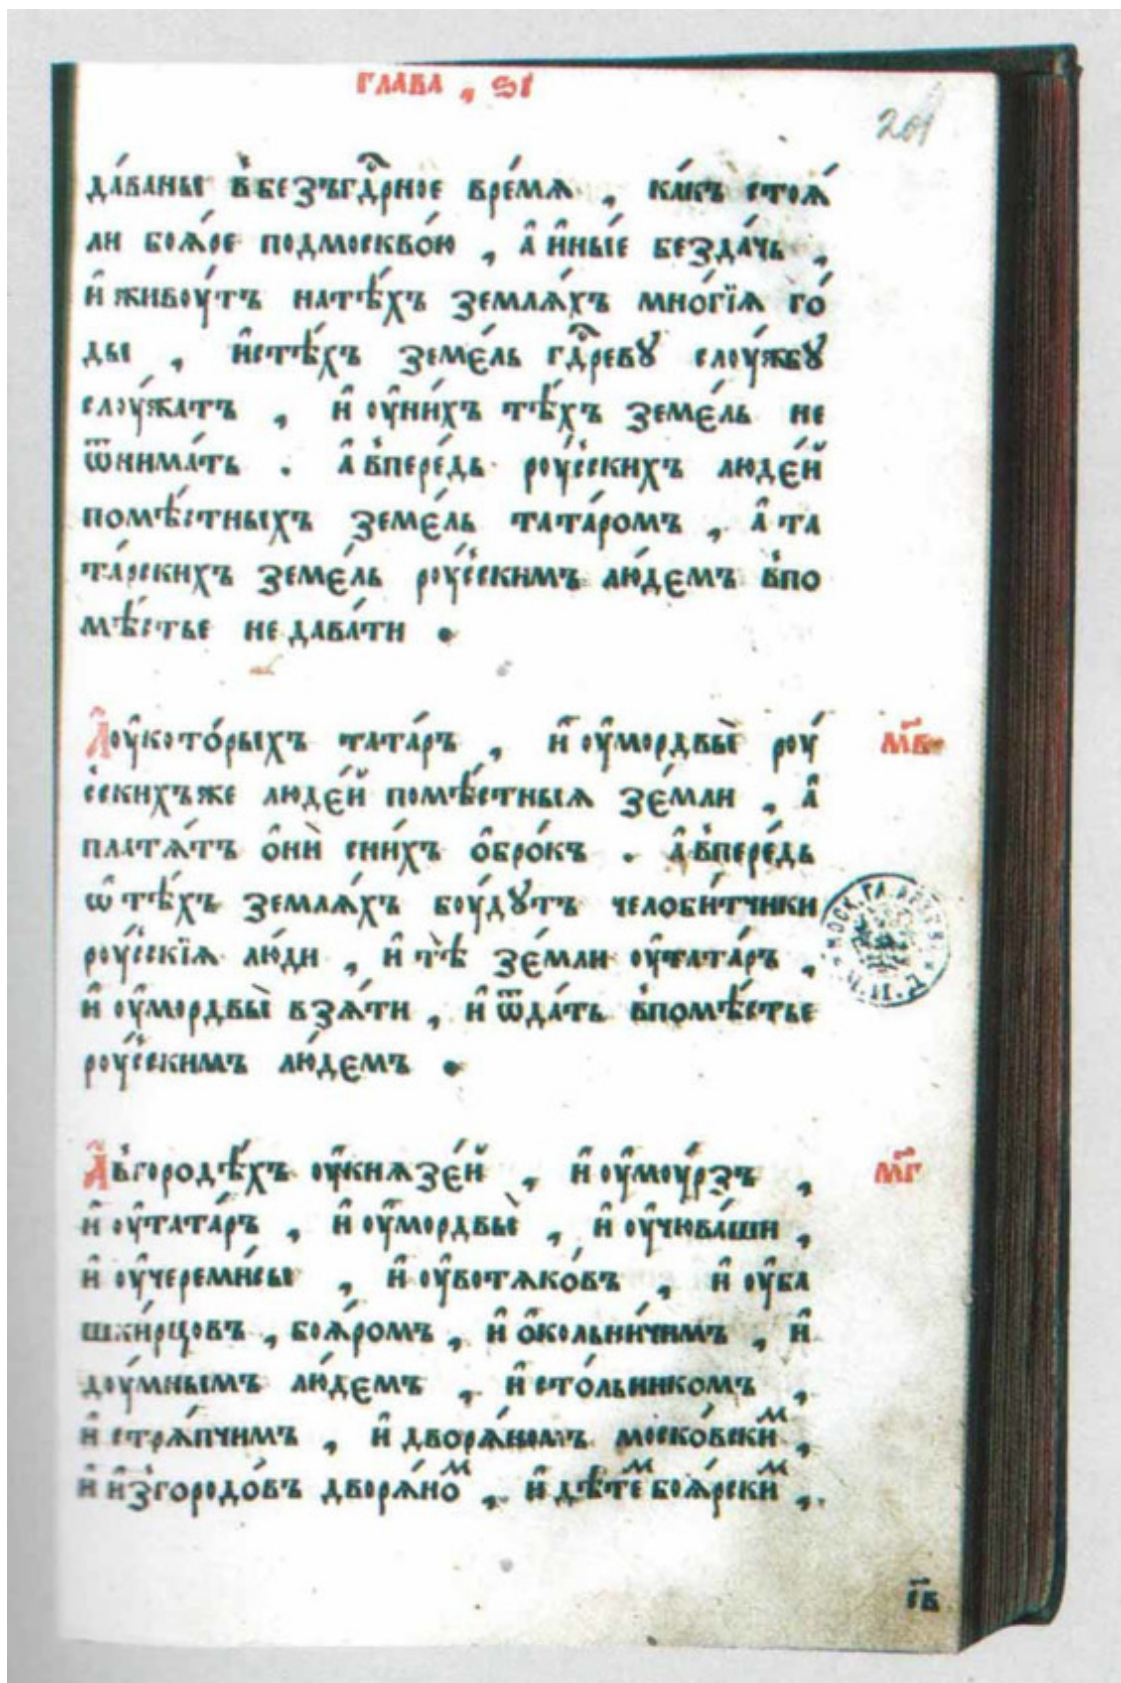 глава , ѕ҃і
201
да́ваны в̾безъгд҇рное вре́мѧ , ка́къ стоѧ́
ли боѧ́ре подмосково́ю , а҆ и҆ны́е безда́чь ,
и҆ живоу́тъ натѣ́хъ землѧ́хъ мно́гїѧ го́
ды , и҆стѣ́хъ земе́ль гд҇ревꙋ слоу́жбꙋ
слоу́жатъ , и҆ оу҆ни́хъ тѣ́хъ земе́ль не
ѿнима́ть . а҆впере́дь роу́сскихъ люде́й
помѣ́стныхъ земе́ль тата́ромъ , а҆ та
та́рскихъ земе́ль роу́сскимъ лю́демъ в̾по
мѣ́стье не дава́ти .
А҆оу҆кото́рыхъ тата́ръ , и҆ оу҆мордвы̀ роу́
сскихъже люде́й помѣ́стныѧ зе́мли , а҆
платѧ́тъ о҆нѝ сни́хъ о҆бро́къ . а҆впере́дь
ѡ҆тѣ́хъ землѧ́хъ боу́дꙋтъ челоби́тчики
роу́сскїѧ лю́ди , и҆ тѣ̀ зе́мли оу҆тата́ръ ,
и҆ оу҆мордвы̀ взѧ́ти , и҆ ѿда́ть в̾помѣ́стье
роу́сскимъ лю́демъ .
м҃в
А҆в̾городѣ́хъ оу҆кнѧзе́й , и҆ оу҆моу́рзъ ,
и҆ оу҆тата́ръ , и҆ оу҆мордвы̀ , и҆ оу҆чюва́ши ,
и҆ оу҆череми́сы , и҆ оу҆вотѧко́въ , и҆ оу҆ба
шки́рцовъ , боѧ́ромъ , и҆ о҆кольни́чимъ , и҆
доу́мнымъ лю́демъ , и҆ сто́льникомъ ,
и҆ стрѧ́пчимъ , и҆ дворѧ́номъ моско́вскиⷨ ,
и҆ и҆з̾городо́въ дворѧ́ноⷨ , и҆ дѣ́теⷨ боѧ́рскиⷨ ,
м҃г
МОСК. ГЛ. АРХИВ
с҃в